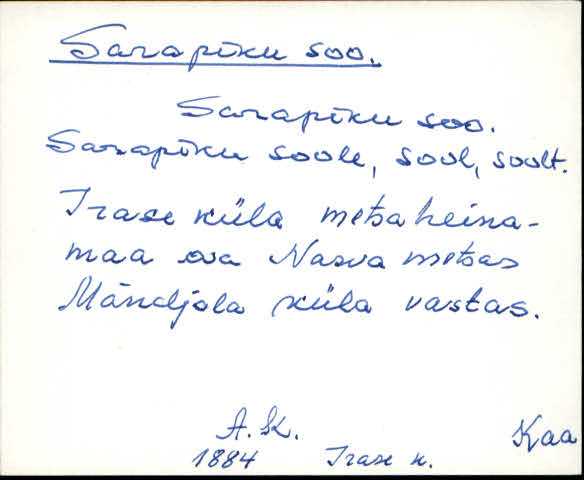 Sarapīku soo.
Sarapīku soo.
Sarapīku soole, sool, soolt.
Irase küla metsaheina-
maa osa Nasva metsas
Mändjala küla vastas.
A. K. Kaa
1884 Irase k.